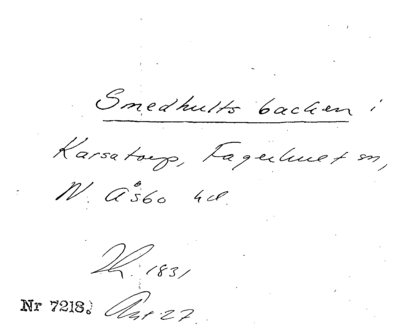 Smedhults backen i
Karsatorp, Fagerhult sn,
N. Åsbo hd.
1831
Nr 7218. 27